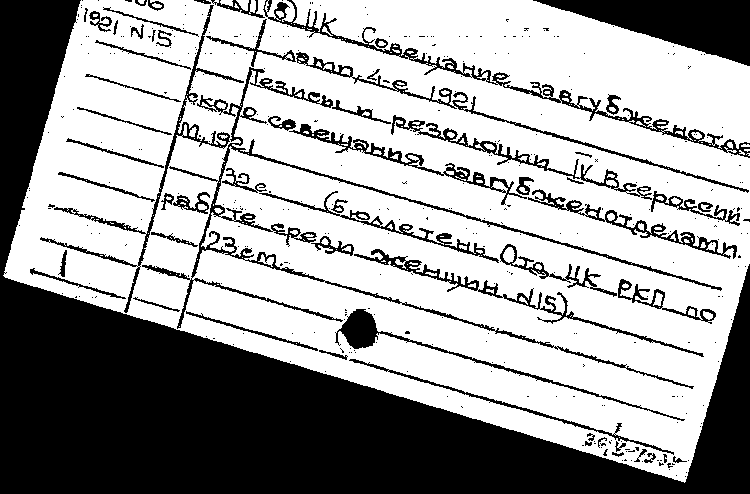 КП(б) ЦК Совещание завгубженотде
1921 N15
лами, 4-е 1921
Тезисы и резолюции IV Всероссий-
ского совещания завгубженотделами.
М, 1921
32 с. (Бюллетень Отд. ЦК РКП по
работе среди женщин. N15).
23 см.
1